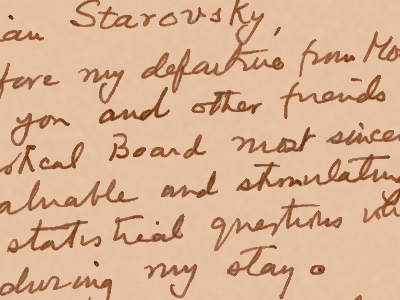 ian Starovsky,
fore my departure from Mo
you and other friends
stical Board most sincer
aluable and stimulatin
statistical questions wh
during my stay.